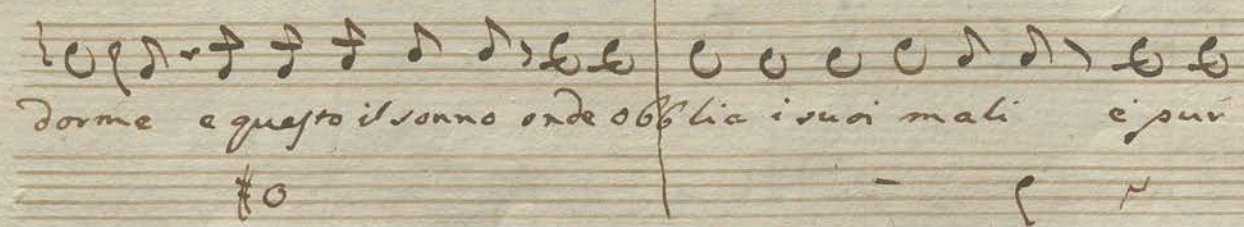 dorme e questo il sonno onde obblia i suoi mali e pur